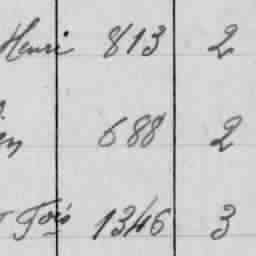 Henri 813 2
688 2
Fois 1346 3